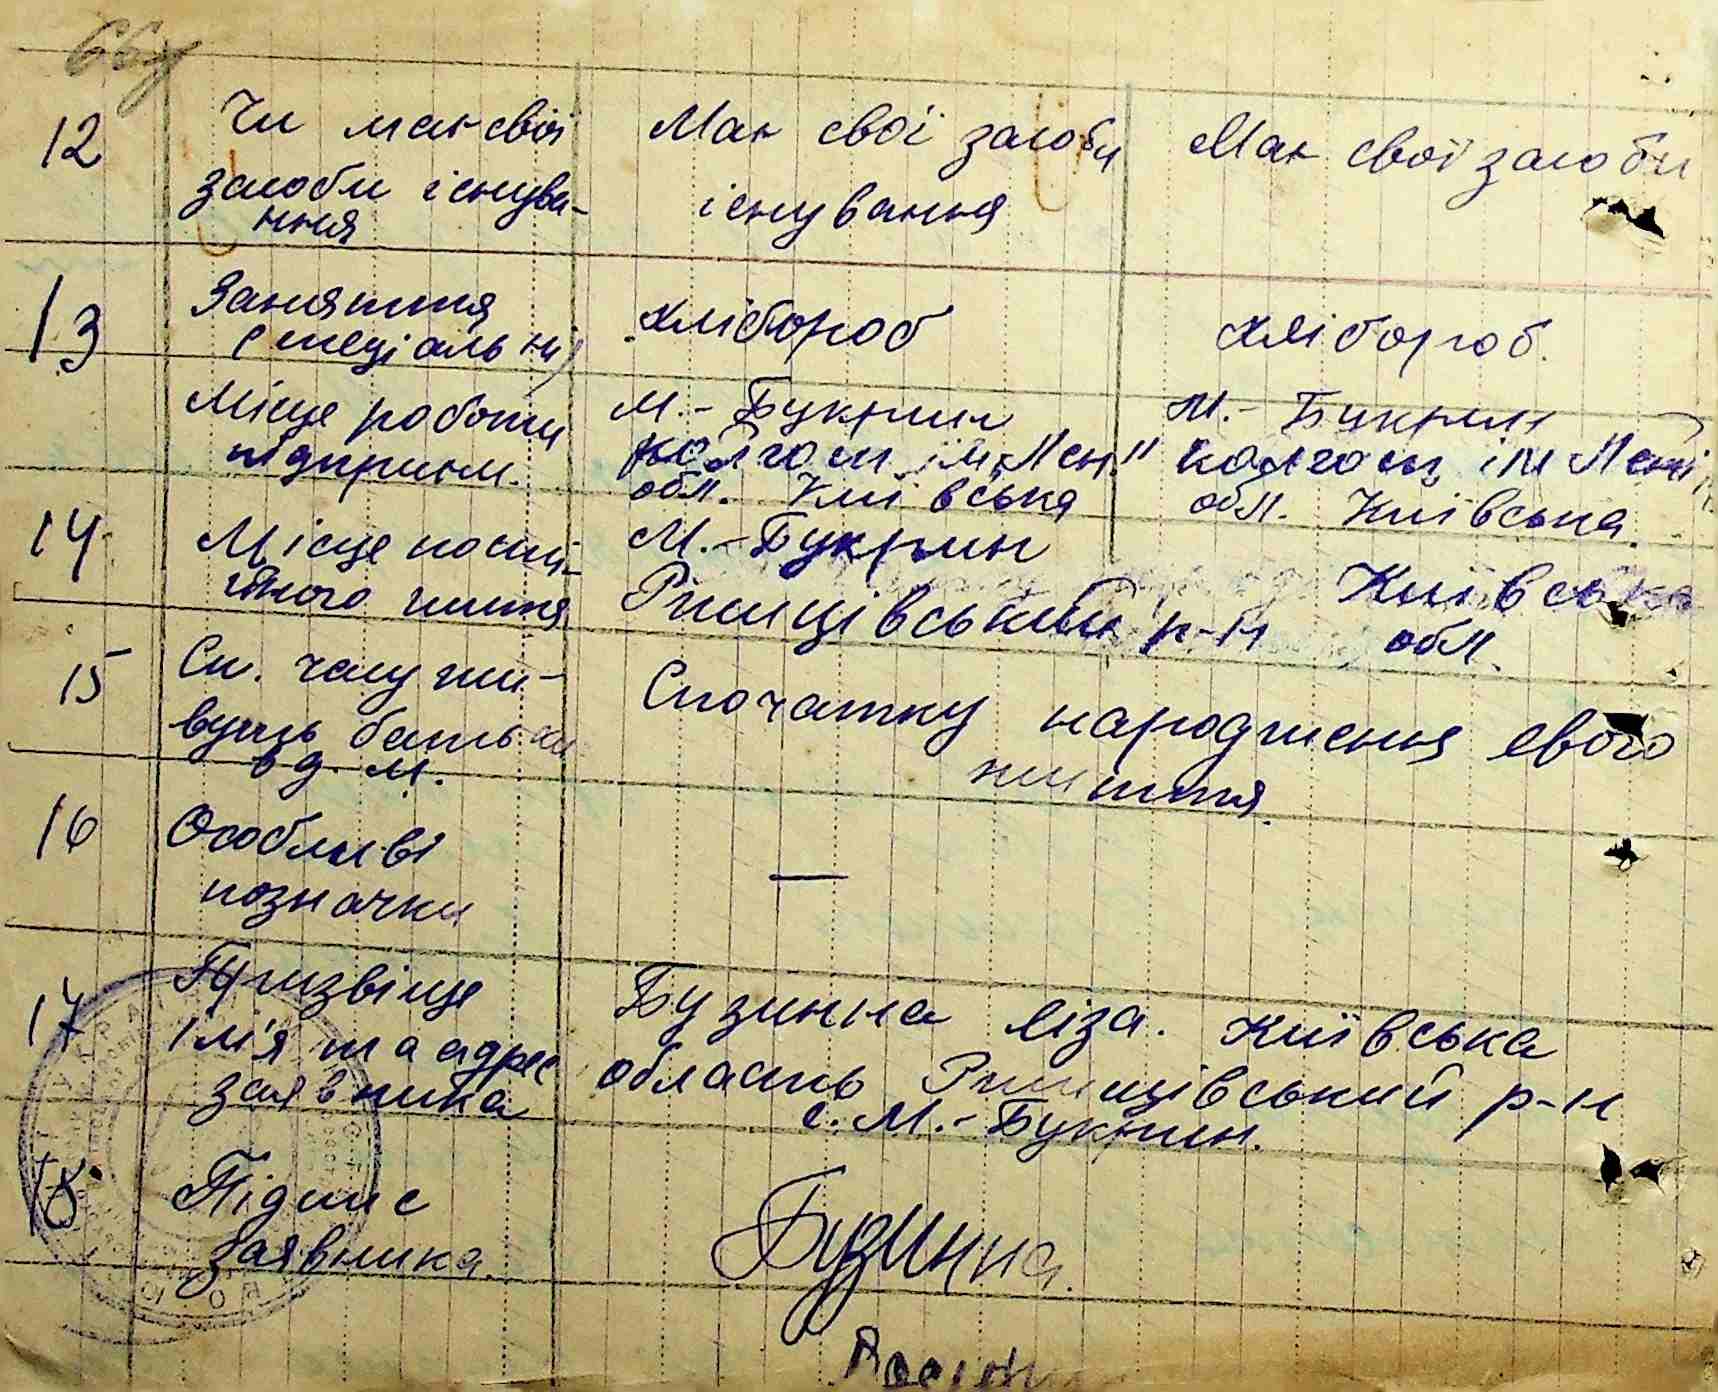 66
12 Чи має свої Має свої засоби Має свої засоби
засоби існува- існування
ння
13 Заняття хлібороб хлібороб.
(спеціальн)
Місце роботи М.-Букрин М.-Букрин
підприєм. колгосп ім. Лен." колгосп ім Лені
обл. Київська обл. Київська.
14 Місце пості- М.-Букрин
йного життя Ржищівський р-н Київська
обл.
15 Ск. часу жи- Спочатку народження свого
вуть батьки життя.
в д. м.
16 Особливі —
позначки
17 Призвіще Бузинна Ліза. Київська
ім'я та адрес область Ржищівський р-н
заявника с. М.-Букрин.
18 Підпис Бузинна.
заявника.